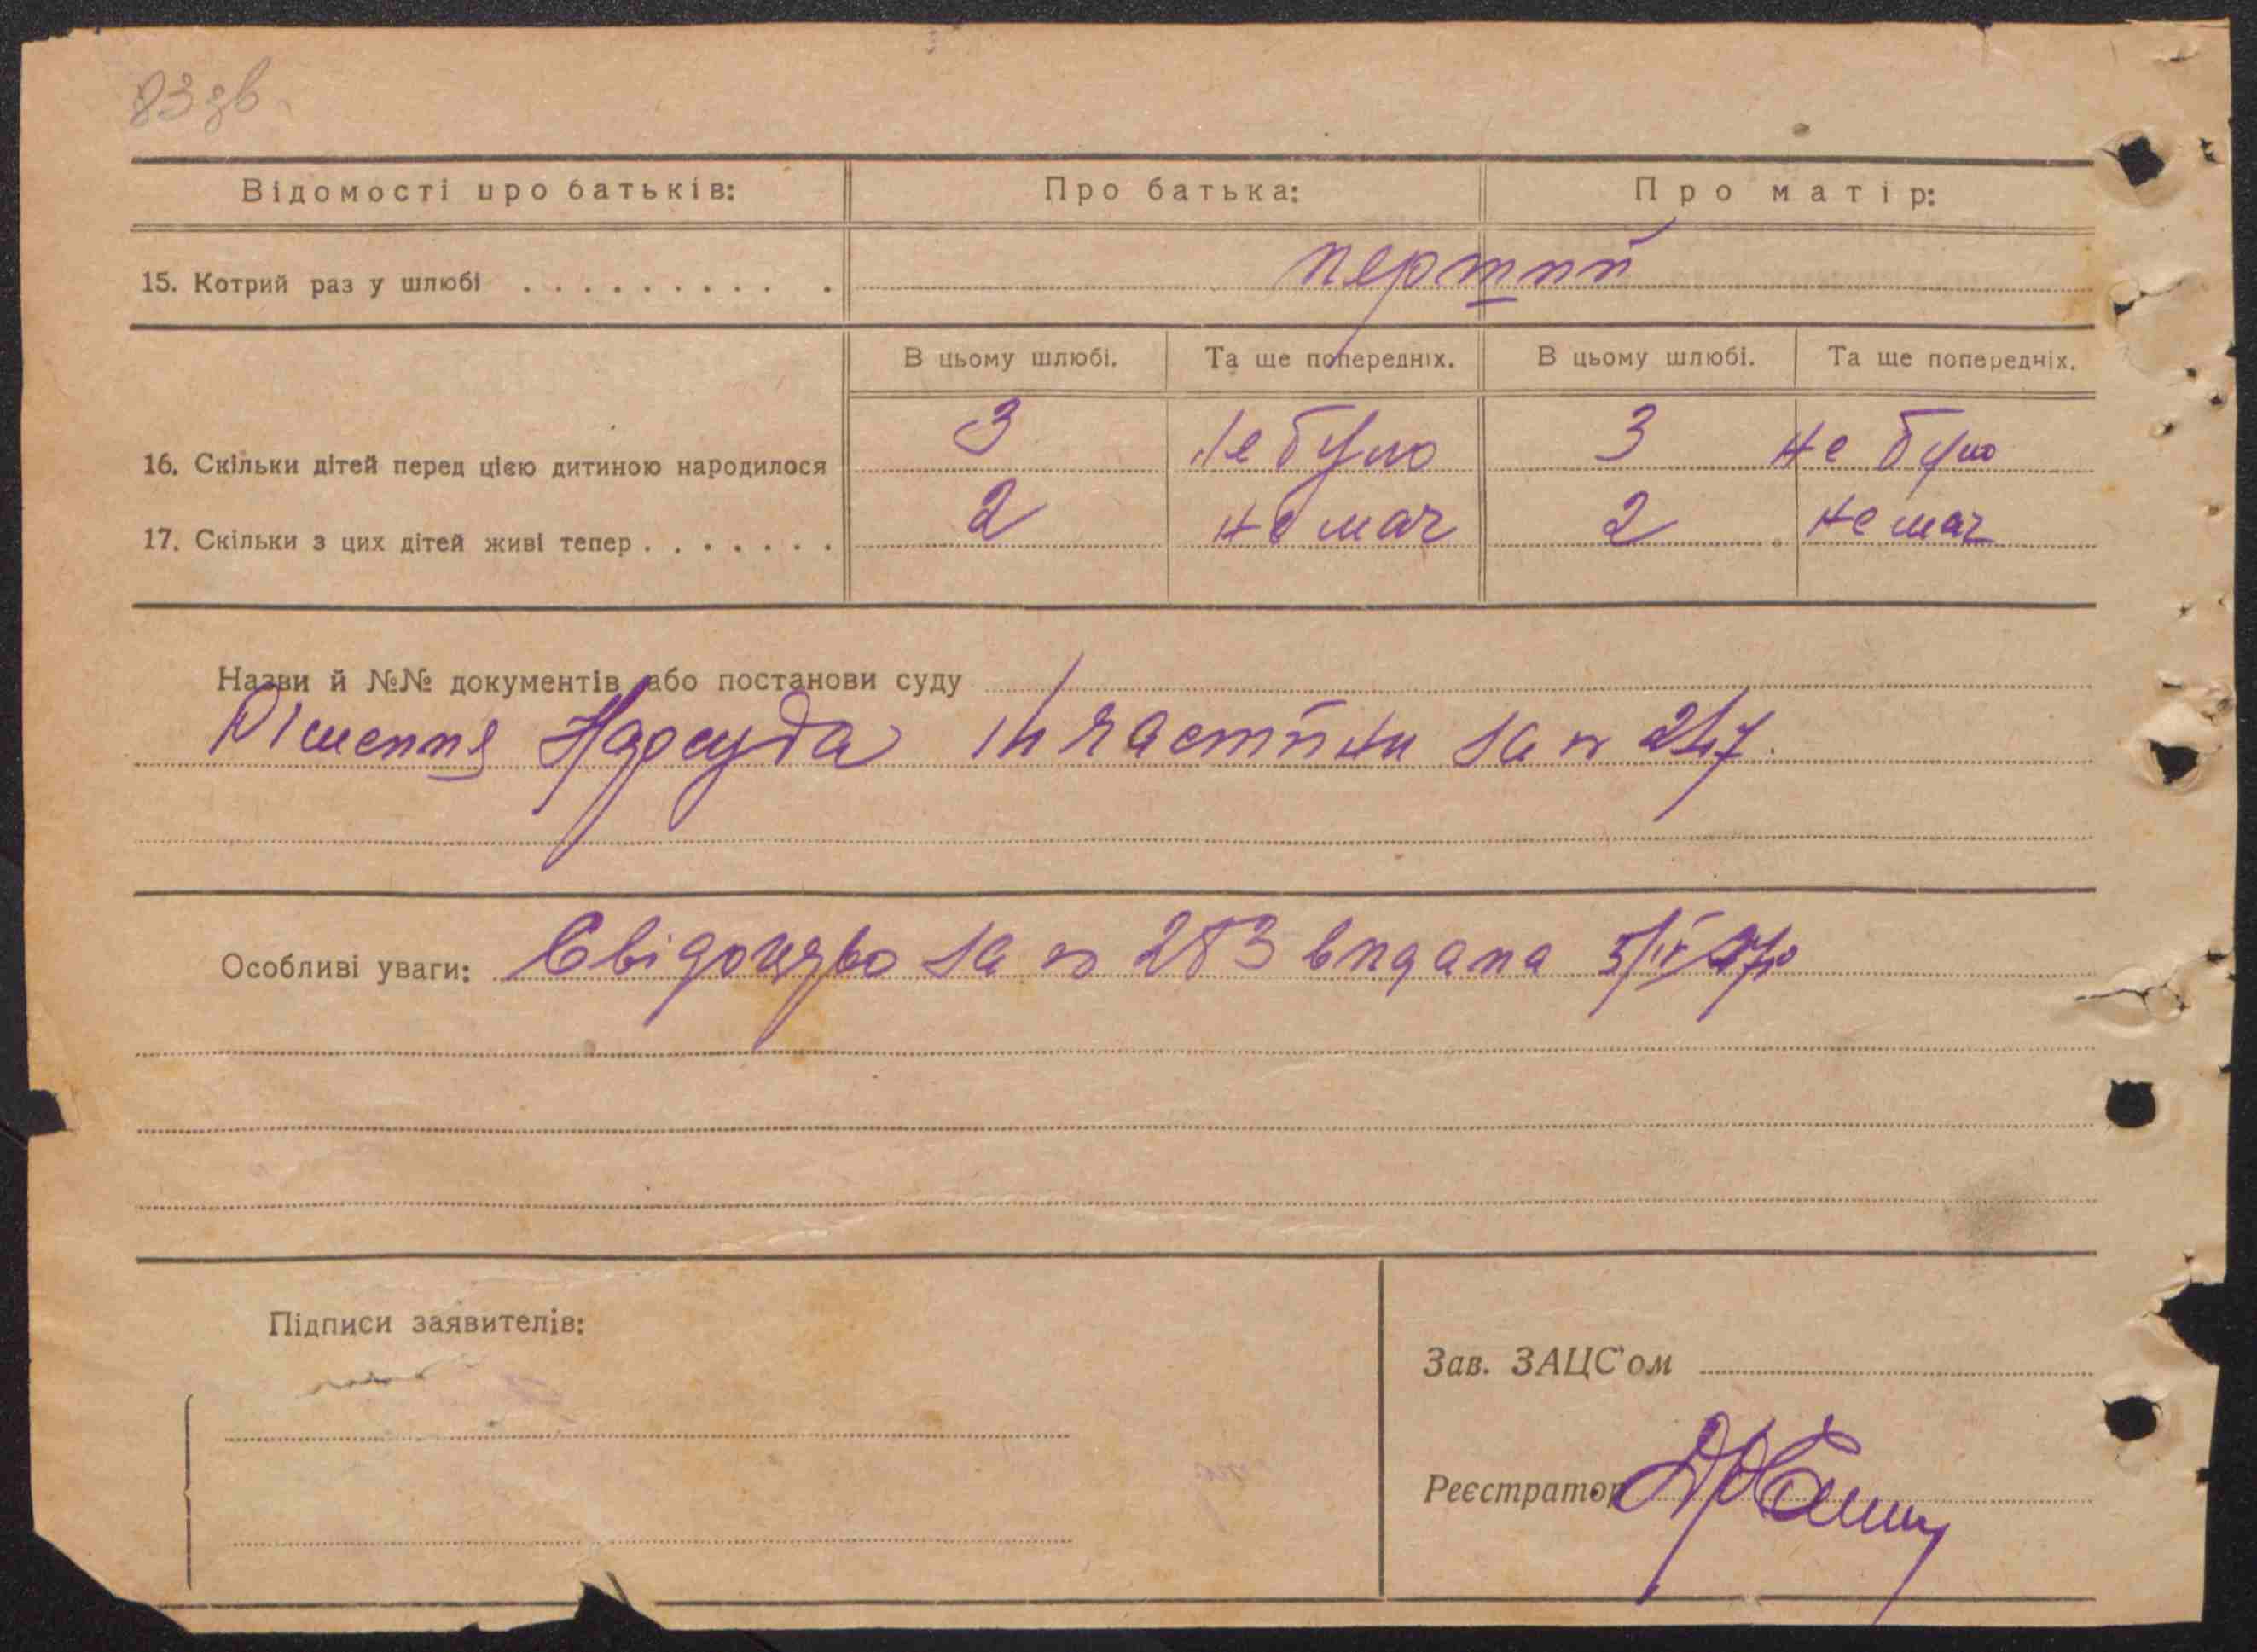 83 зв
Відомості про батьків: Про батька: Про матір:
15. Котрий раз у шлюбі . . . . . . . . . . перший
В цьому шлюбі. Та ще попередніх. В цьому шлюбі. Та ще попередніх.
16. Скільки дітей перед цією дитиною народилося 3 не було 3 не було
17. Скільки з цих дітей живі тепер . . . . . . . 2 немає 2 немає
Назви й №№ документів або постанови суду
Рішення Нарсуда частини за № 247.
Особливі уваги: Свідоцтво за № 283 видана 5/IV 40
Підписи заявителів:
Зав. ЗАЦС'ом
Реєстратор